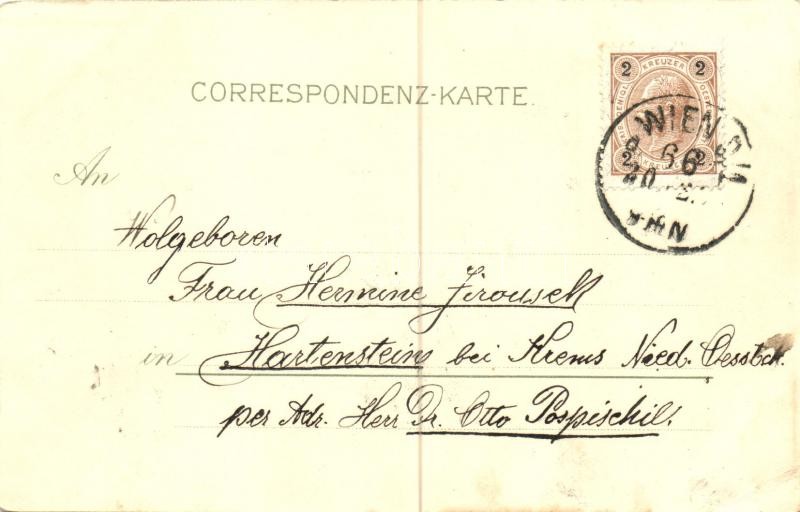 CORRESPONDENZ-KARTE.
2 KREUZER 2
2 KREUZER 2
WIEN
66
WIEN
An
Wolgeboren
Frau Hermine Jirousek
in Hartenstein bei Krems Nied. Oesstr.
per Adr. Herr Dr. Otto Pospischil.